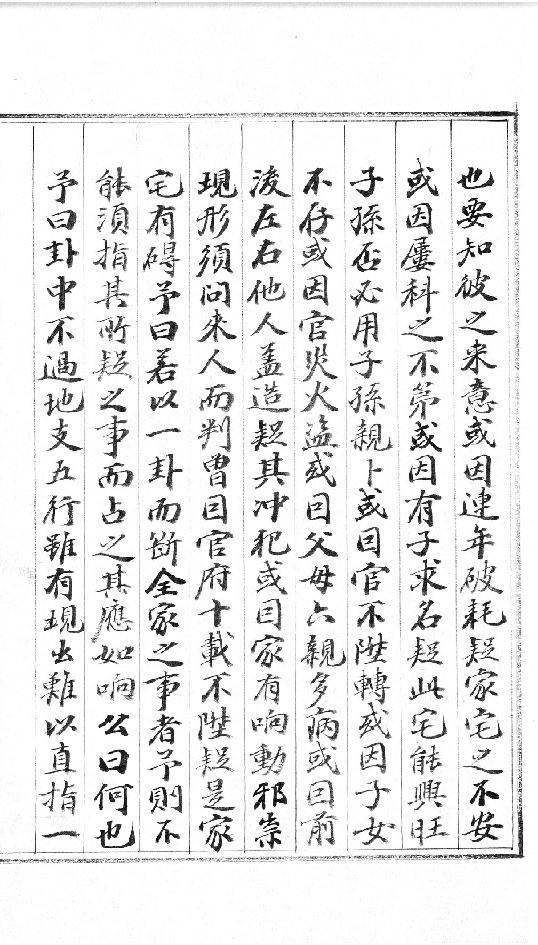 也要知彼之来意或因連年破耗疑家宅之不安
或因屢科之不第或因有子求名疑此宅能興旺
子孫否必用子孫親卜或因官不陞轉或因子女
不仔或因官災火盜或因父母六親多病或因前
後左右他人盖造疑其冲犯或因家有响動邪祟
現形須问来人而判曾因官府十載不陞疑是家
宅有碍予曰若以一卦而断全家之事者予則不
能須指其所疑之事而占之其應如响公曰何也
予曰卦中不過地支五行雖有現出難以直指一